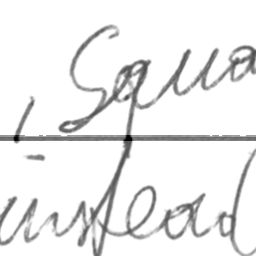 , Squa
instead